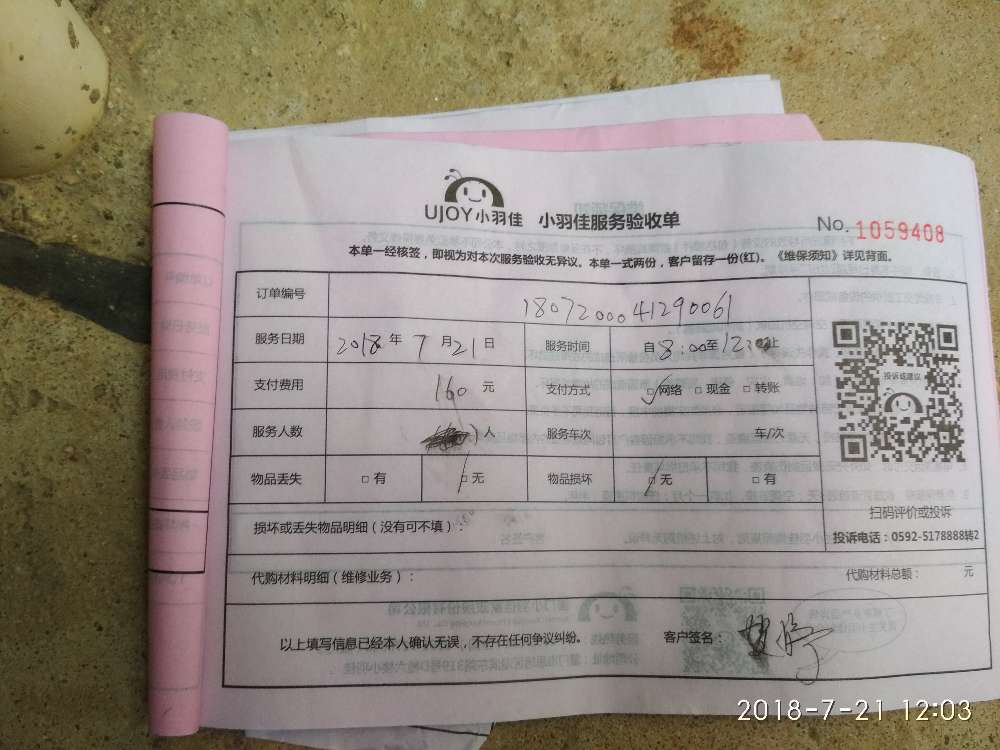 UJOY小羽佳 小羽佳服务验收单
No. 1059408
本单一经核签，即视为对本次服务验收无异议。本单一式两份，客户留存一份(红)。《维保须知》详见背面。
订单编号 1807200041290061
服务日期 2018 年 7 月 21 日 服务时间 自 8:00 至 12:00 止
支付费用 160 元 支付方式 □网络 □现金 □转账
服务人数 人 服务车次 车/次
物品丢失 □有 □无 物品损坏 □无 □有
投诉或建议
扫码评价或投诉
投诉电话：0592-5178888转2
损坏或丢失物品明细（没有可不填）：
代购材料明细（维修业务）： 代购材料总额： 元
以上填写信息已经本人确认无误，不存在任何争议纠纷。 客户签名：
2018-7-21 12:03